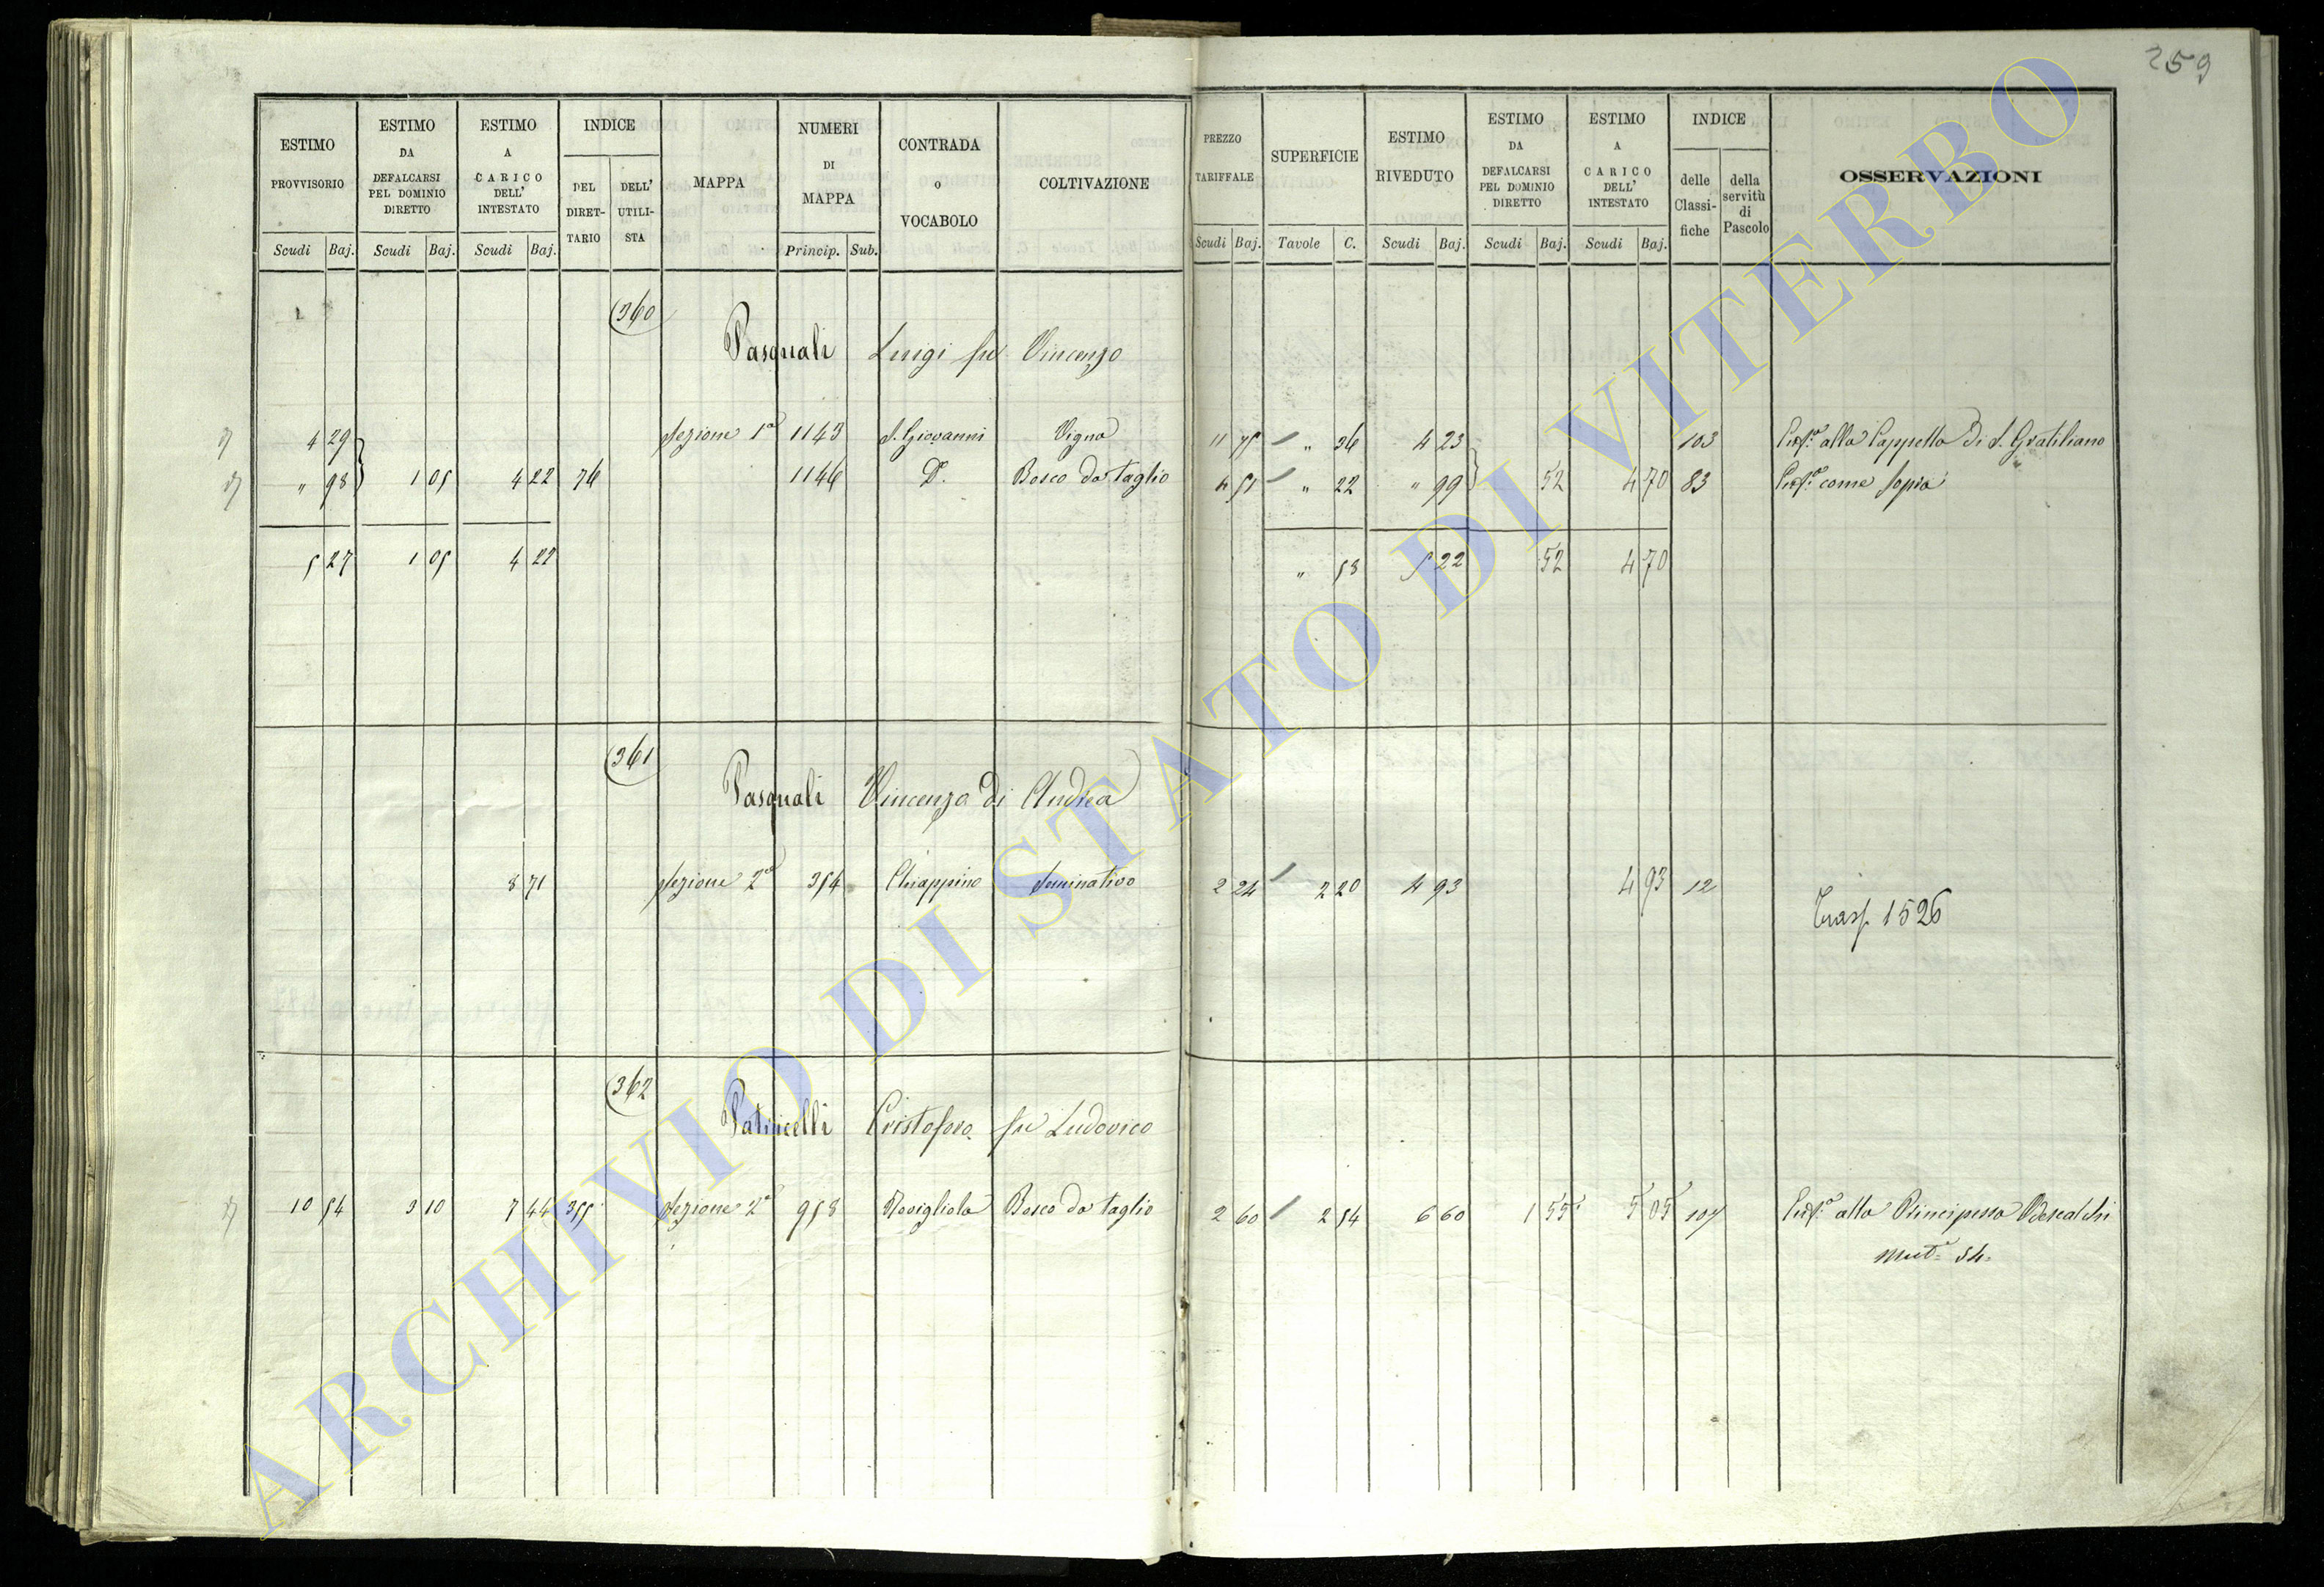 259
ESTIMO PROVVISORIO
ESTIMO DA DEFALCARSI PEL DOMINIO DIRETTO
ESTIMO A CARICO DELL' INTESTATO
INDICE
DEL DIRET-TARIO
DELL' UTILI-STA
MAPPA
NUMERI DI MAPPA
CONTRADA O VOCABOLO
COLTIVAZIONE
PREZZO TARIFFALE
SUPERFICIE
ESTIMO RIVEDUTO
ESTIMO DA DEFALCARSI PEL DOMINIO DIRETTO
ESTIMO A CARICO DELL' INTESTATO
INDICE
delle Classi-fiche
della servitù di Pascolo
OSSERVAZIONI
Scudi Baj. Scudi Baj. Scudi Baj. Princip. Sub. Scudi Baj. Tavole C. Scudi Baj. Scudi Baj. Scudi Baj.
360
Pasquali Luigi fu Vincenzo
4 29 Sezione 1ª 1143 S. Giovanni Vigna 11 75 " 36 4 23 103 alla Cappella di S. Gratiliano
" 98 1 05 4 22 76 1146 D. Bosco da taglio 4 51 " 22 " 99 52 4 70 83 come sopra
5 27 1 05 4 22 " 58 5 22 52 4 70
361
Pasquali Vincenzo di Andrea
8 71 Sezione 2ª 354 Chiappino Seminativo 2 24 2 20 4 93 4 93 12
Trasp. 1526
362
Patricelli Cristoforo fu Ludovico
10 54 3 10 7 44 355 Sezione 2ª 958 Bosco da taglio 2 60 2 54 6 60 1 55 5 05 107 alla Principessa Odescalchi
ARCHIVIO DI STATO DI VITERBO